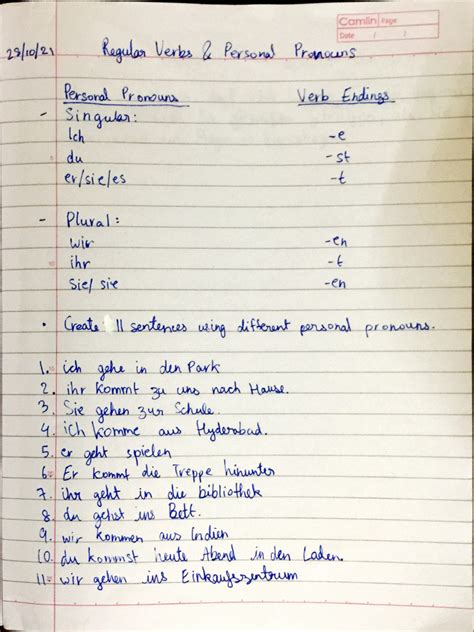 Camlin Page
Date / /
28/10/21 Regular Verbs & Personal Pronouns
Personal Pronouns Verb Endings
- Singular:
Ich -e
du -st
er/sie/es -t
- Plural:
wir -en
ihr -t
Sie/sie -en
• Create 11 sentences using different personal pronouns.
1. ich gehe in den Park
2. ihr kommt zu uns nach Hause.
3. Sie gehen zur Schule.
4. ich komme aus Hyderabad.
5. er geht spielen
6. Er kommt die Treppe hinunter
7. ihr geht in die bibliothek
8. du gehst ins Bett.
9. wir kommen aus Indien
10. du kommst heute Abend in den Laden.
11. wir gehen ins Einkaufszentrum